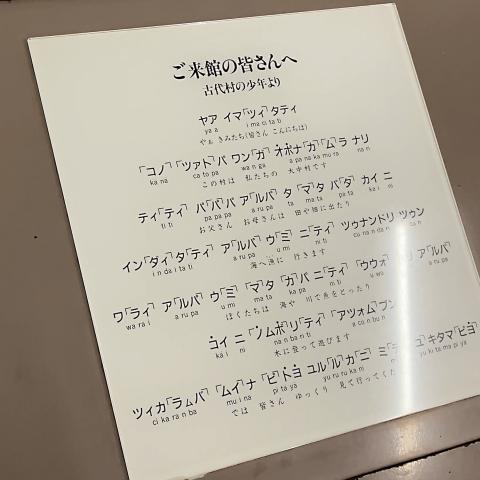 ご来館の皆さんへ
古代村の少年より
ヤア イマ「ツィ」タティ
ya a i ma ci ta ti
やぁ きみたち(皆さん こんにちは)
「コノ」「ツァト」パ ワン「ガ」 オポナ「ガ」「ム」ラ ナリ
kana ca to pa wa n ga a pa na ka mu ra na ri
この村は 私たちの 大中村です
ティ「ティ」 パ「パ」パ ア「ルパ」 タ「マ」タ パ「タ」 カイ ニ
ti ti pa pa pa a ru pa ta ma ta pa ta ka i ni
お父さん お母さんは 田や畑に出たり
イン「ダィ」タ「ティ」 ア「ルパ」 ウ「ミ」 ニ「ティ」 ツゥナンドリ ツゥン
i n da i ta ti a ru pa u mi ni ti cu na n da n cu n
海へ漁に 行きます
ワ「ライ」 ア「ルパ」 ウ「ミ」「マ」タ「ガ」パ ニ「ティ」「ウウォ」 ア「ルパ」
wa ra i a ru pa u mi ma ta ka pa ni ti u wo a ru pa
ぼくたちは 海や 川で魚をとったり
ヨイ ニ「ンムポ」リ「ティ」「アツォム」ブン
ka i ni na n ba n ti a co n bu n
木に登って遊びます
ツィカ「ラムバ」「ムイ」ナ「ピ」トヨ ユル「ル」カ「ニ」 ミ ユ」キタマ「ピヨ」
ci ka ra n ba mu i na pi ta ya yu ru ru ka ni yu ki ta ma pi ya
では 皆さん ゆっくり 見て行ってくだ